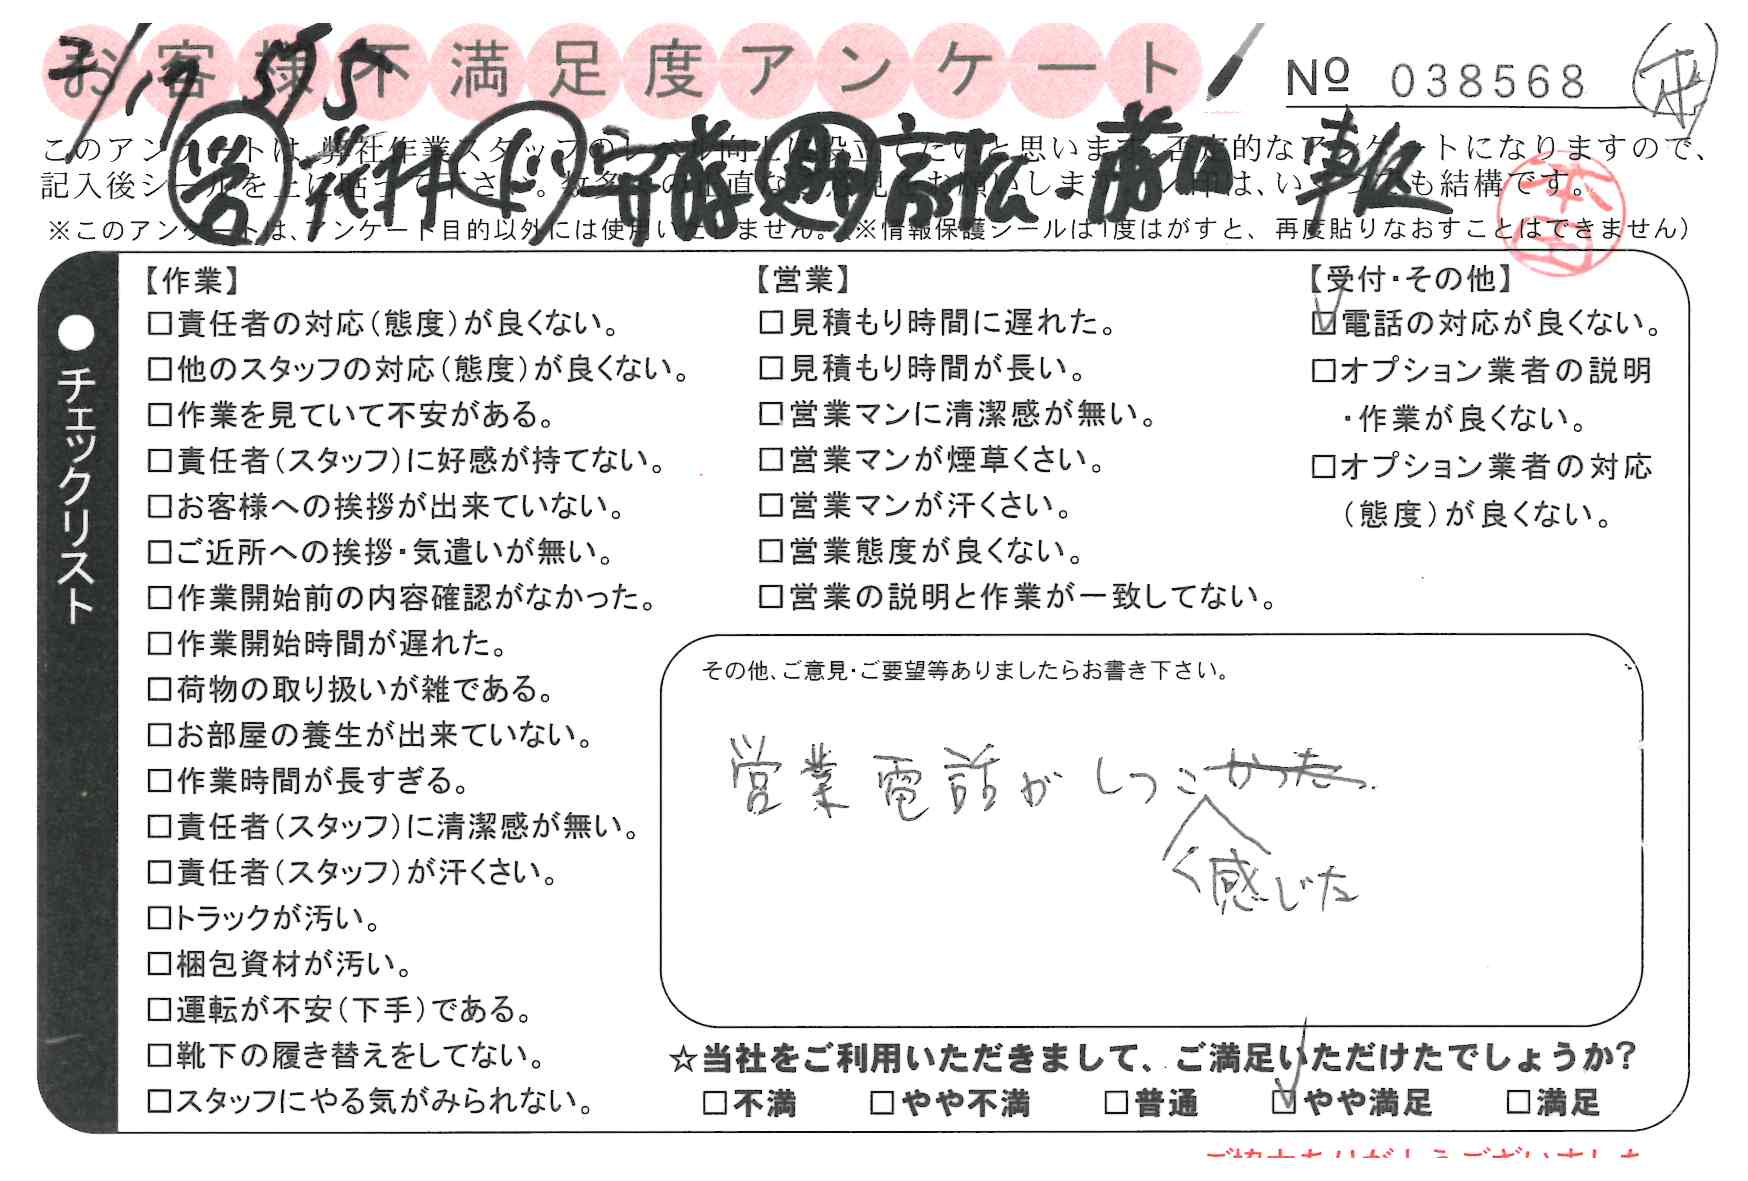 お客様不満足度アンケート
Nº 038568
3/17 575
このアンケートは、弊社作業スタッフのレベル向上に役立てたいと思います。否定的なアンケートになりますので、
記入後シールを上に貼って下さい。数多くの正直なご意見をお願いします。
は、いくつでも結構です。
※このアンケートは、アンケート目的以外には使用いたしません。(※情報保護シールは1度はがすと、再度貼りなおすことはできません)
●チェックリスト
【作業】
□責任者の対応(態度)が良くない。
□他のスタッフの対応(態度)が良くない。
□作業を見ていて不安がある。
□責任者(スタッフ)に好感が持てない。
□お客様への挨拶が出来ていない。
□ご近所への挨拶・気遣いが無い。
□作業開始前の内容確認がなかった。
□作業開始時間が遅れた。
□荷物の取り扱いが雑である。
□お部屋の養生が出来ていない。
□作業時間が長すぎる。
□責任者(スタッフ)に清潔感が無い。
□責任者(スタッフ)が汗くさい。
□トラックが汚い。
□梱包資材が汚い。
□運転が不安(下手)である。
□靴下の履き替えをしてない。
□スタッフにやる気がみられない。
【営業】
□見積もり時間に遅れた。
□見積もり時間が長い。
□営業マンに清潔感が無い。
□営業マンが煙草くさい。
□営業マンが汗くさい。
□営業態度が良くない。
□営業の説明と作業が一致してない。
【受付・その他】
☑電話の対応が良くない。
□オプション業者の説明
・作業が良くない。
□オプション業者の対応
(態度)が良くない。
その他、ご意見・ご要望等ありましたらお書き下さい。
営業電話がしつこかった
く感じた
☆当社をご利用いただきまして、ご満足いただけたでしょうか?
□不満 □やや不満 □普通 ☑やや満足 □満足
ご協力ありがとうございました